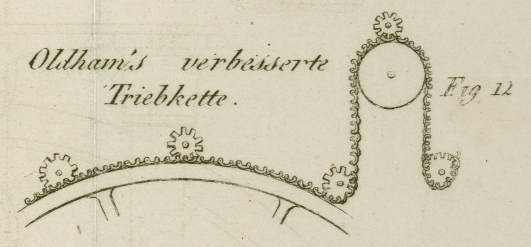 Oldham's verbesserte
Triebkette.
Fig 12